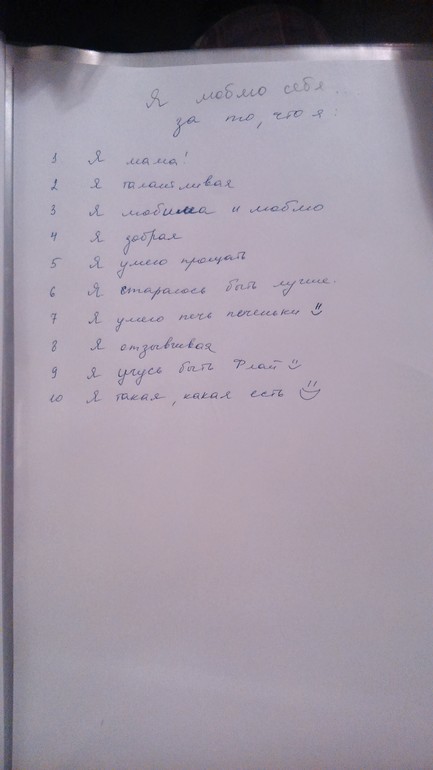 Я люблю себя
за то, что я:
1 Я мама!
2 Я талантливая
3 Я любима и люблю
4 Я добрая
5 Я умею прощать
6 Я стараюсь быть лучше.
7 Я умею печь печеньки
8 Я отзывчивая
9 Я учусь быть Флай
10 Я такая, какая есть